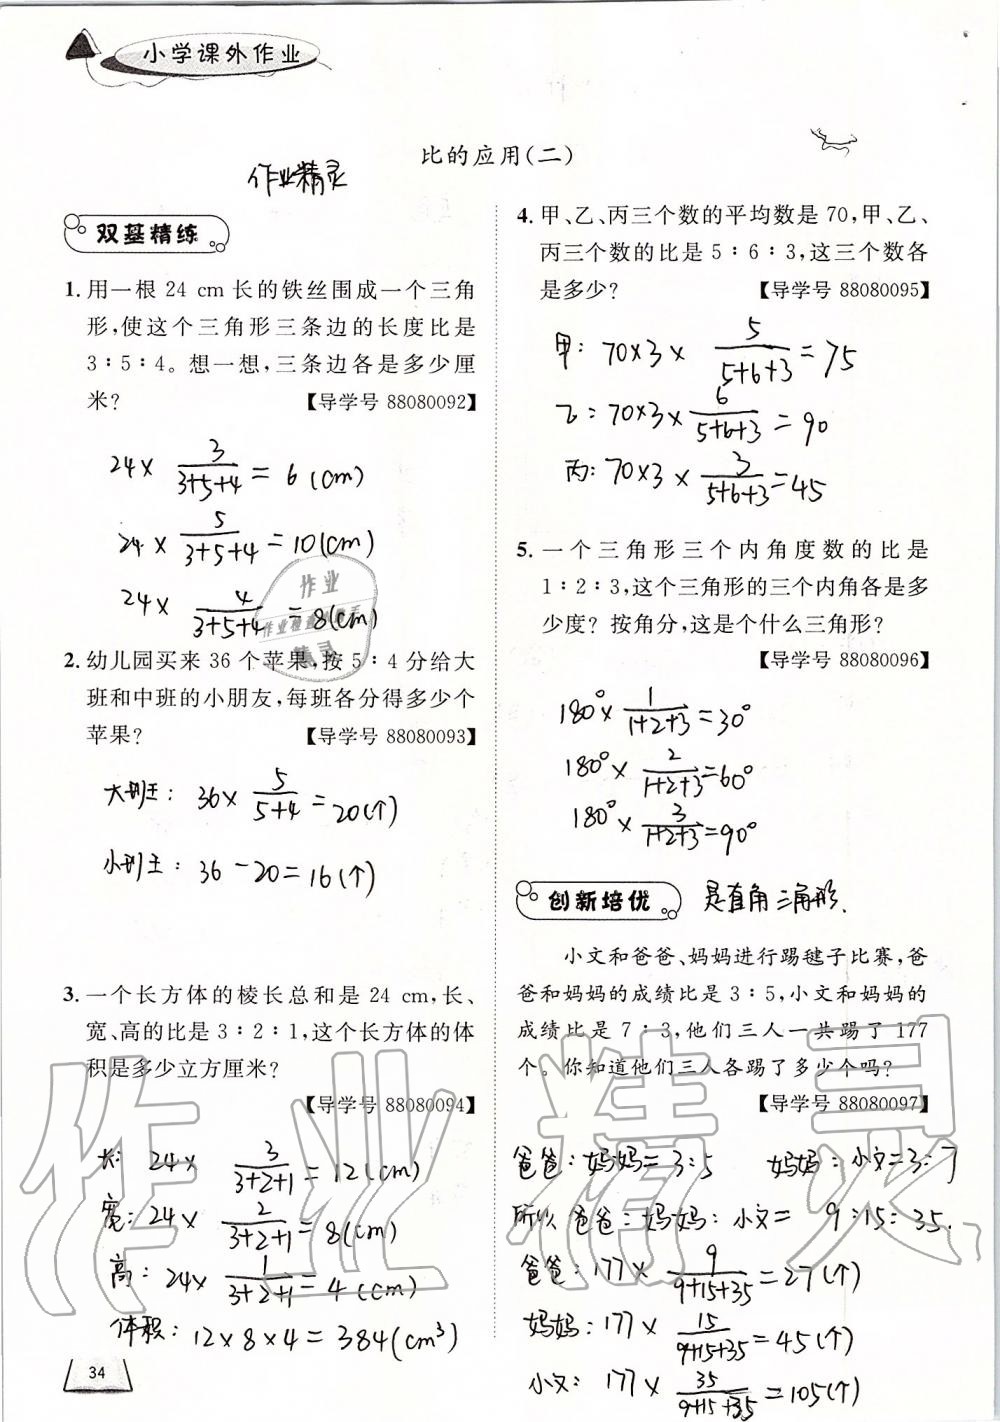 小学课外作业
比的应用(二)
作业精灵
双基精练
1. 用一根 24 cm 长的铁丝围成一个三角
形,使这个三角形三条边的长度比是
3∶5∶4。想一想,三条边各是多少厘
米? 【导学号 88080092】
24 × 3/(3+5+4) = 6 (cm)
24 × 5/(3+5+4) = 10 (cm)
24 × 4/(3+5+4) = 8 (cm)
2. 幼儿园买来 36 个苹果,按 5∶4 分给大
班和中班的小朋友,每班各分得多少个
苹果? 【导学号 88080093】
大班: 36 × 5/(5+4) = 20 (个)
小班: 36 - 20 = 16 (个)
3. 一个长方体的棱长总和是 24 cm,长、
宽、高的比是 3∶2∶1,这个长方体的体
积是多少立方厘米?
【导学号 88080094】
长: 24 × 3/(3+2+1) = 12 (cm)
宽: 24 × 2/(3+2+1) = 8 (cm)
高: 24 × 1/(3+2+1) = 4 (cm)
体积: 12 × 8 × 4 = 384 (cm³)
34
4. 甲、乙、丙三个数的平均数是 70,甲、乙、
丙三个数的比是 5∶6∶3,这三个数各
是多少? 【导学号 88080095】
甲: 70×3× 5/(5+6+3) = 75
乙: 70×3× 6/(5+6+3) = 90
丙: 70×3× 3/(5+6+3) = 45
5. 一个三角形三个内角度数的比是
1∶2∶3,这个三角形的三个内角各是多
少度? 按角分,这是个什么三角形?
【导学号 88080096】
180° × 1/(1+2+3) = 30°
180° × 2/(1+2+3) = 60°
180° × 3/(1+2+3) = 90°
是直角三角形.
创新培优
小文和爸爸、妈妈进行踢毽子比赛,爸
爸和妈妈的成绩比是 3∶5,小文和妈妈的
成绩比是 7∶3,他们三人一共踢了 177
个。你知道他们三人各踢了多少个吗?
【导学号 88080097】
爸爸:妈妈=3:5 妈妈:小文=3:7
所以 爸爸:妈妈:小文= 9:15:35.
爸爸: 177 × 9/(9+15+35) = 27 (个)
妈妈: 177 × 15/(9+15+35) = 45 (个)
小文: 177 × 35/(9+15+35) = 105 (个)
作业
作业检查小帮手
精灵
作业精灵